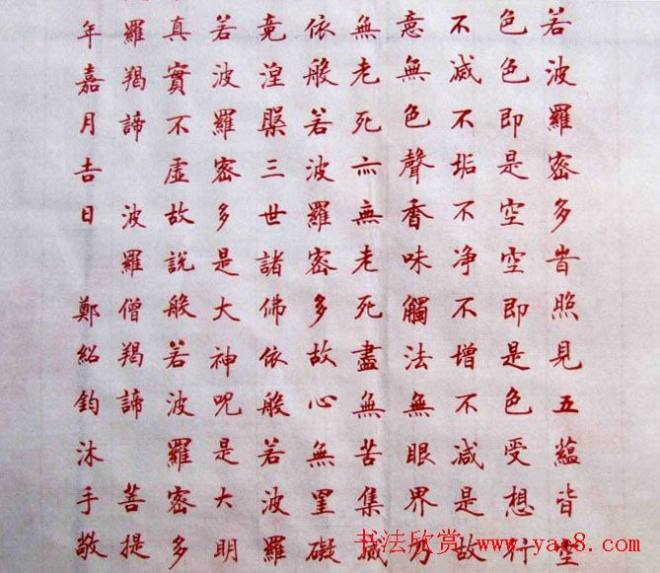 若波羅密多時照見五蘊皆空
色色即是空空即是色受想行
不滅不垢不净不增不減是故
意無色聲香味觸法無眼界乃
無老死亦無老死盡無苦集滅
依般若波羅密多故心無罣礙
竟涅槃三世諸佛依般若波羅
若波羅密多是大神呪是大明
真實不虛故說般若波羅密多
羅揭諦 波羅僧揭諦 菩提
年嘉月吉日 鄭紹鈞沐手敬
书法欣赏 www.yac8.com